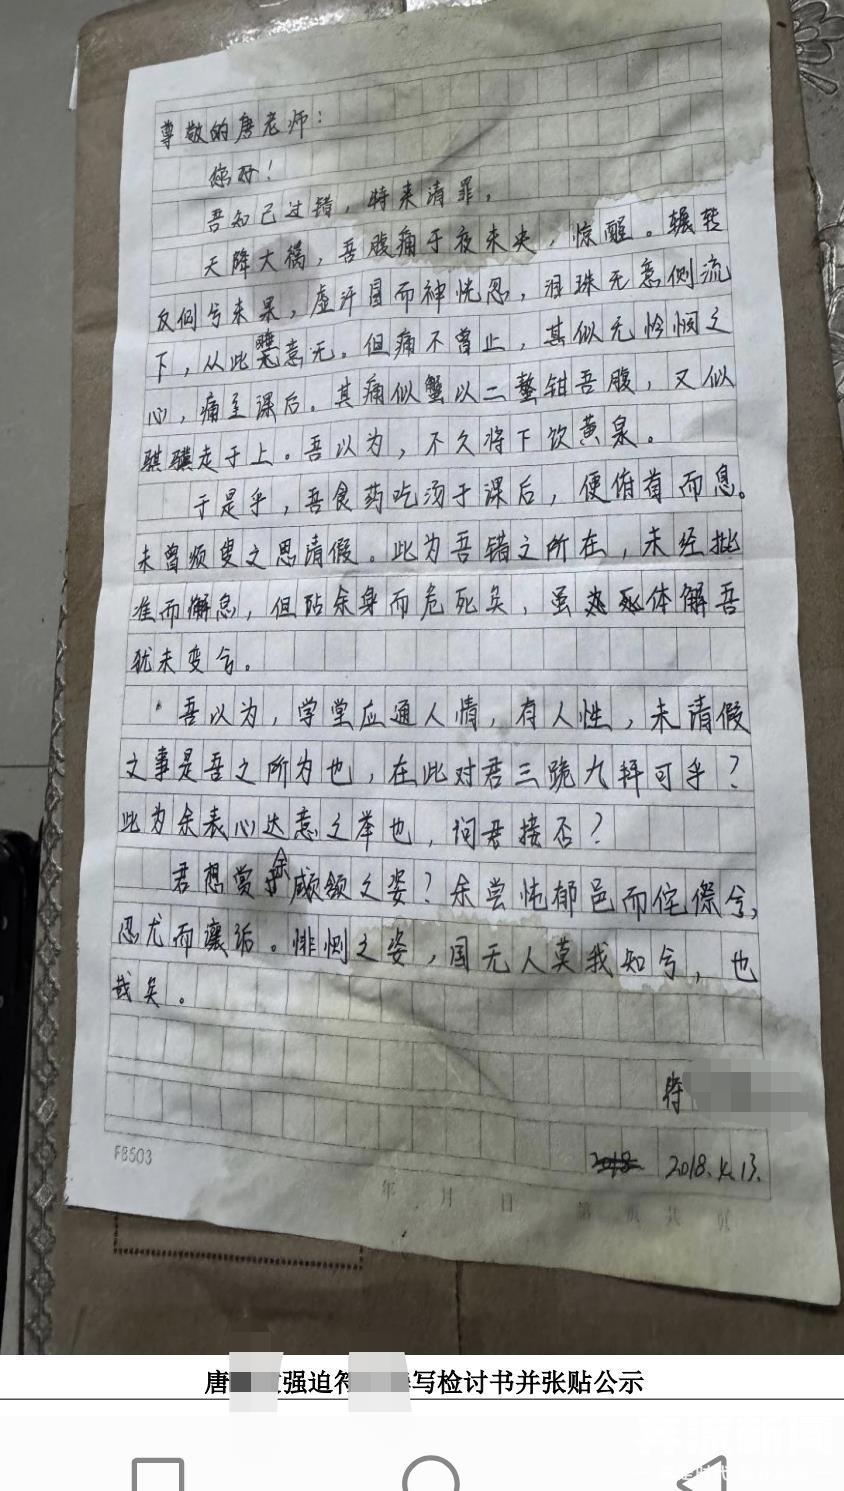 尊敬的唐老师：
您好！
吾知己过错，特来请罪。
天降大祸，吾腹痛于夜未央，惊醒。辗转
反侧兮未果，虚汗冒而神恍忽，泪珠无意侧流
下，从此意无。但痛不曾止，其似无怜悯之
心，痛至课后。其痛似蟹以二螯钳吾腹，又似
骐骥走于上。吾以为，不久将下饮黄泉。
于是乎，吾食药吃汤于课后，便俯首而息。
未曾须臾之思请假。此为吾错之所在，未经批
准而懈怠，但阽余身而危死矣，虽死体解吾
犹未变兮。
吾以为，学堂应通人情，有人性，未请假
之事是吾之所为也，在此对君三跪九拜可乎？
此为余表心达意之举也，问君接否？
君想赏余顑颔之姿？余尝忳郁邑而侘傺兮，
忍尤而攘诟。悱恻之姿，国无人莫我知兮，也
哉矣。
符
2018.4.13.
F8503
年 月 日 第 页 共 页
唐强迫符写检讨书并张贴公示